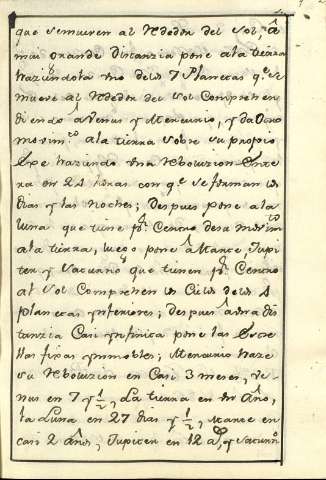 que se mueven al Rededor del Sol; â
mas grande distanzia pone a la tierra
haziendola uno de los 7 Planetas q.e se
mueve al Rededor del Sol Comprehen
diendo â Venus y Mercurio, y da Otro
movim.to a la tierra sobre su propio
Exe haziendo una Reboluzion Ente
ra en 24 horas con q.e se forman los
dias y las noches; Despues pone a la
luna que tiene p.r Centro de su movim.to
a la tierra, luego pone â Marte Jupi
ter y Saturno que tienen p.r Centro
al Sol Comprehen los Cielos de los 4
planetas ynferiores; despues â una dis
tanzia Casi ynfinita pone las Estre
llas fixas ynmobles; Mercurio haze
su Reboluzion en Casi 3 meses, Ve
nus en 7 y 1/2, La tierra en un Año,
la Luna en 27 dias y 1/2, Marte en
casi 2 años, Jupiter en 12 a.s, y Saturno